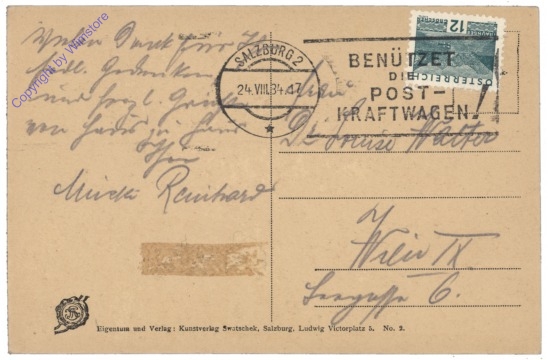 Vielen Dank für Ihr
frdl. Gedenken
und herzl. Grüße
von Haus zu Haus
Ihr
Reinhard
Copyright by Wimstore
SALZBURG 2
24.VIII.34.17
BENÜTZET
DIE
POST-
KRAFTWAGEN!
12
ÖSTERREICH
Dr Louise Walter
Wien IX
Seegasse 6.
Eigentum und Verlag: Kunstverlag Swatschek, Salzburg, Ludwig Victorplatz 5. No. 2.